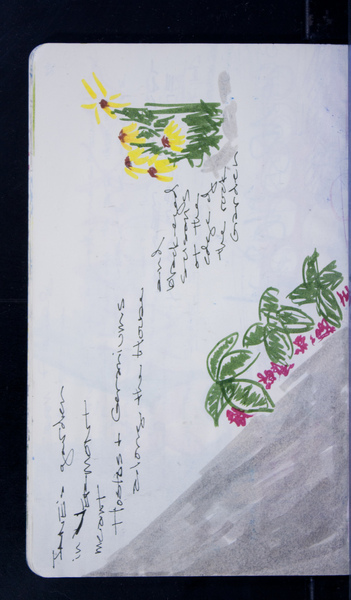 JANE's garden
in Vermont
meant
Hostas + Geraniums
along the House
and
blackeyed
susans
at the
edge of
the rock
Garden